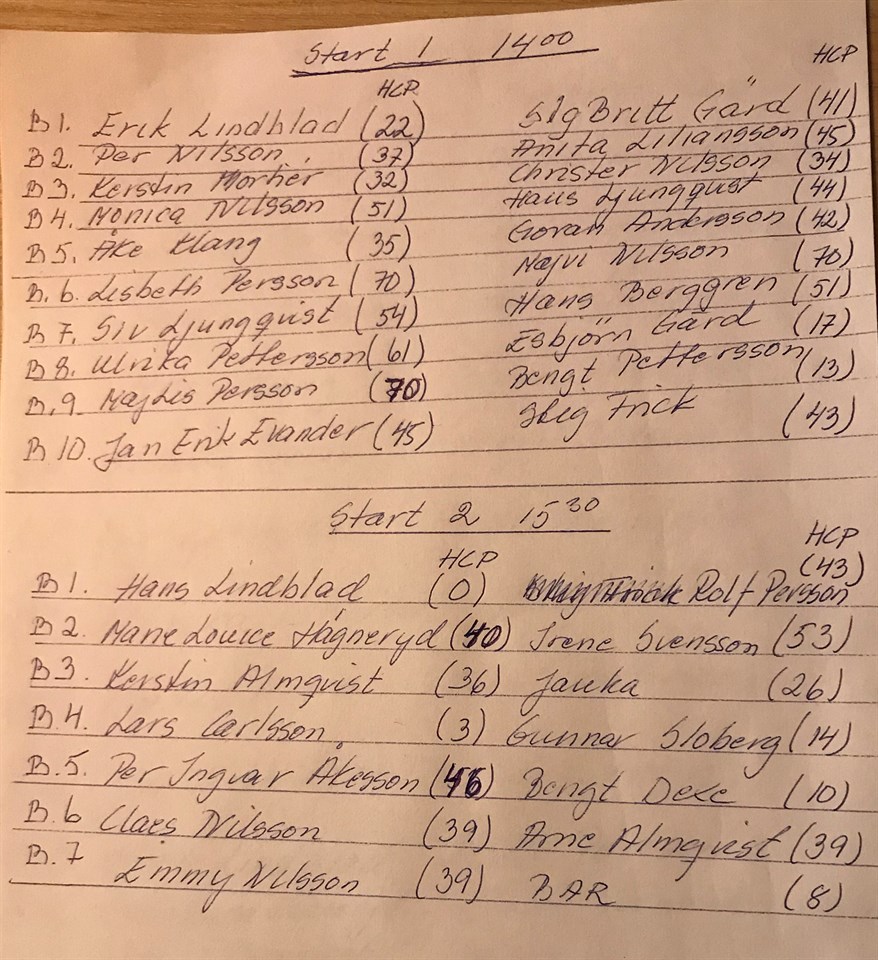 Start 1 1400
HCP HCP
B1. Erik Lindblad (22) SigBritt Gärd (41)
B2. Per Nilsson (37) Anita Liliansson (45)
B3. Kerstin Mortier (32) Christer Nilsson (34)
B4. Monica Nilsson (51) Hans Ljungquist (44)
B5. Åke Klang (35) Göran Andersson (42)
B.6. Lisbeth Persson (70) Majvi Nilsson (70)
B7. Siv Ljungquist (54) Hans Berggren (51)
B8. Ulrika Pettersson (61) Esbjörn Gärd (17)
B.9 MajLis Persson (70) Bengt Pettersson (13)
B10. Jan Erik Evander (45) Frick (43)
Start 2 15 30
HCP HCP
B1. Hans Lindblad (0) Rolf Persson (43)
B2. Marie Louice Hägneryd (40) Irene Svensson (53)
B3. Kerstin Almqvist (36) (26)
B4. Lars Carlsson (3) Gunnar Sloberg (14)
B.5. Per Ingvar Åkesson (46) Bengt (10)
B.6 Claes Nilsson (39) Arne Almqvist (39)
B.7 Emmy Nilsson (39) BAR (8)